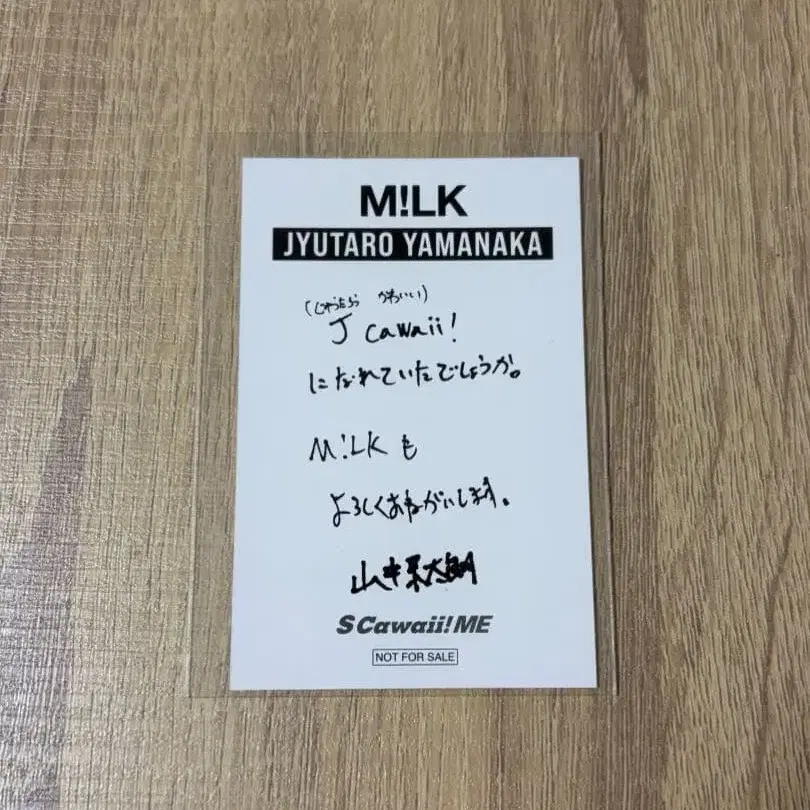 M!LK
JYUTARO YAMANAKA
(じゅうたろう かわいい)
J cawaii!
になれていたでしょうか。
M!LKも
よろしくおねがいします。
山中柔太朗
S Cawaii! ME
NOT FOR SALE